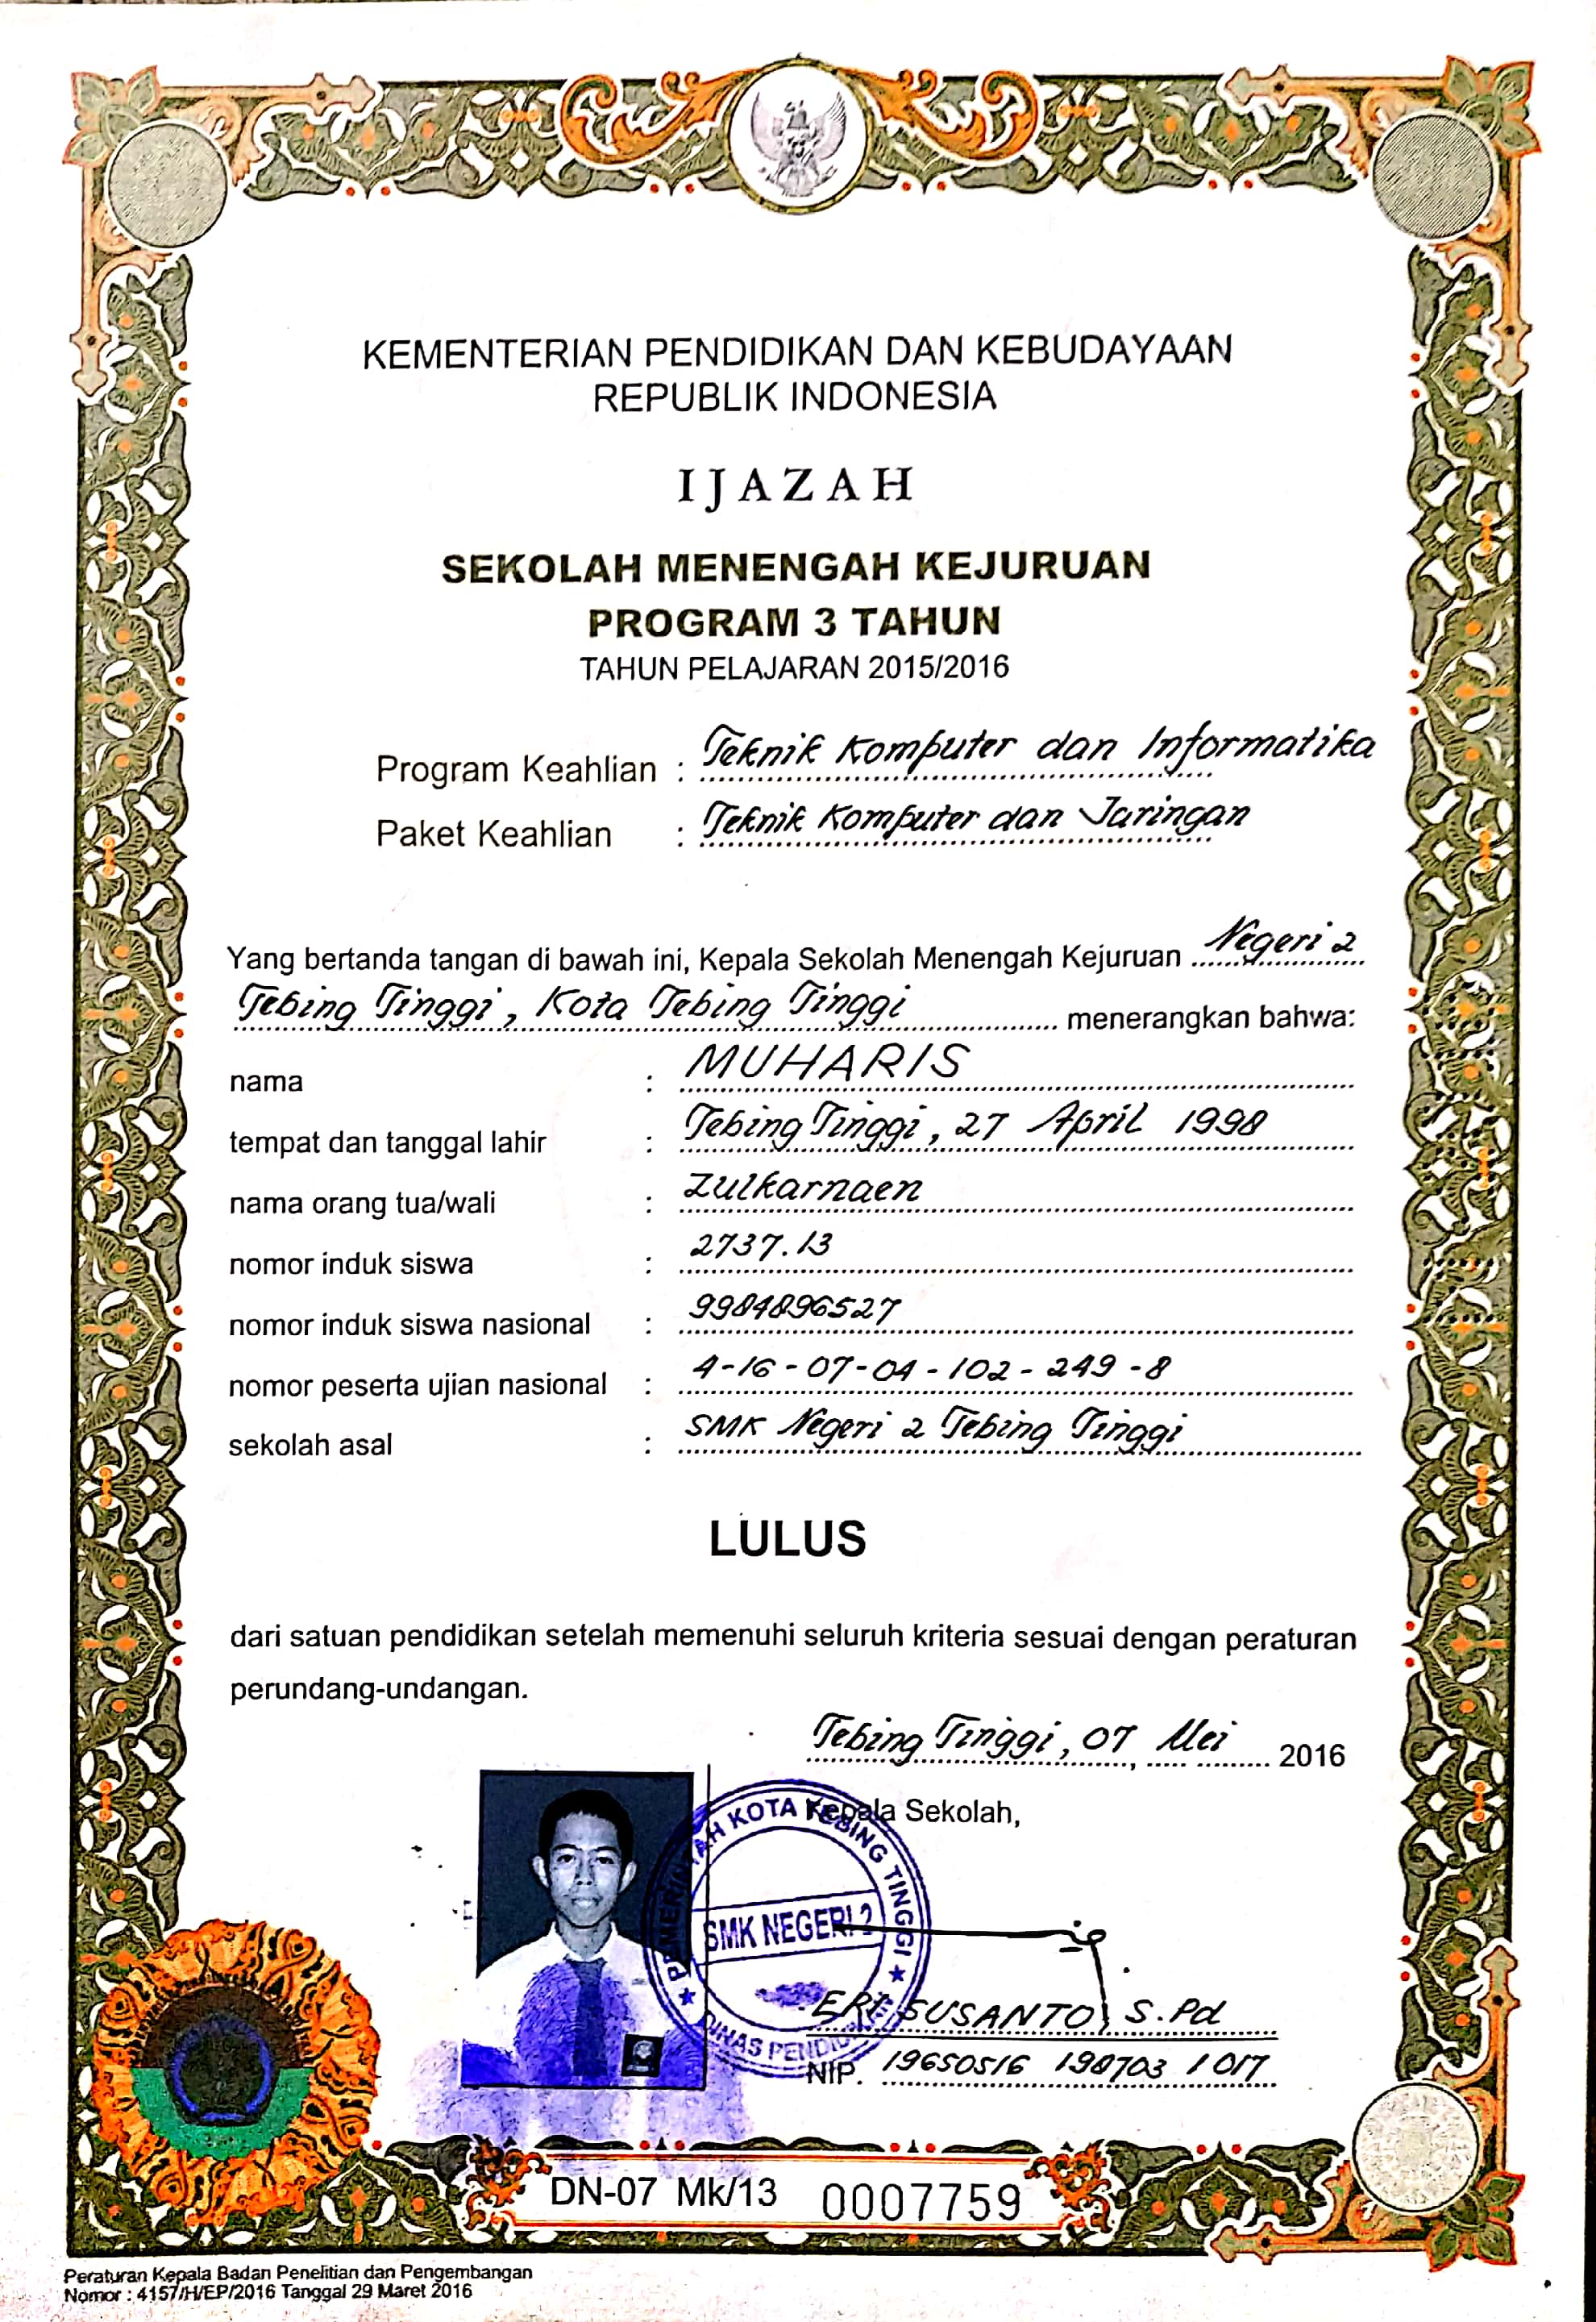 KEMENTERIAN PENDIDIKAN DAN KEBUDAYAAN
REPUBLIK INDONESIA
IJAZAH
SEKOLAH MENENGAH KEJURUAN
PROGRAM 3 TAHUN
TAHUN PELAJARAN 2015/2016
Program Keahlian : Teknik Komputer dan Informatika
Paket Keahlian : Teknik Komputer dan Jaringan
Yang bertanda tangan di bawah ini, Kepala Sekolah Menengah Kejuruan Negeri 2
Tebing Tinggi, Kota Tebing Tinggi menerangkan bahwa:
nama : MUHARIS
tempat dan tanggal lahir : Tebing Tinggi, 27 April 1998
nama orang tua/wali : Zulkarnaen
nomor induk siswa : 2737.13
nomor induk siswa nasional : 9984896527
nomor peserta ujian nasional : 4-16-07-04-102-249-8
sekolah asal : SMK Negeri 2 Tebing Tinggi
LULUS
dari satuan pendidikan setelah memenuhi seluruh kriteria sesuai dengan peraturan
perundang-undangan.
Tebing Tinggi, 07 Mei 2016
Kepala Sekolah,
PEMERINTAH KOTA TEBING TINGGI
SMK NEGERI 2
DINAS PENDIDIKAN
ERI SUSANTO, S.Pd
NIP. 19650516 198703 1 017
DN-07 Mk/13 0007759
Peraturan Kepala Badan Penelitian dan Pengembangan
Nomor : 4157/H/EP/2016 Tanggal 29 Maret 2016